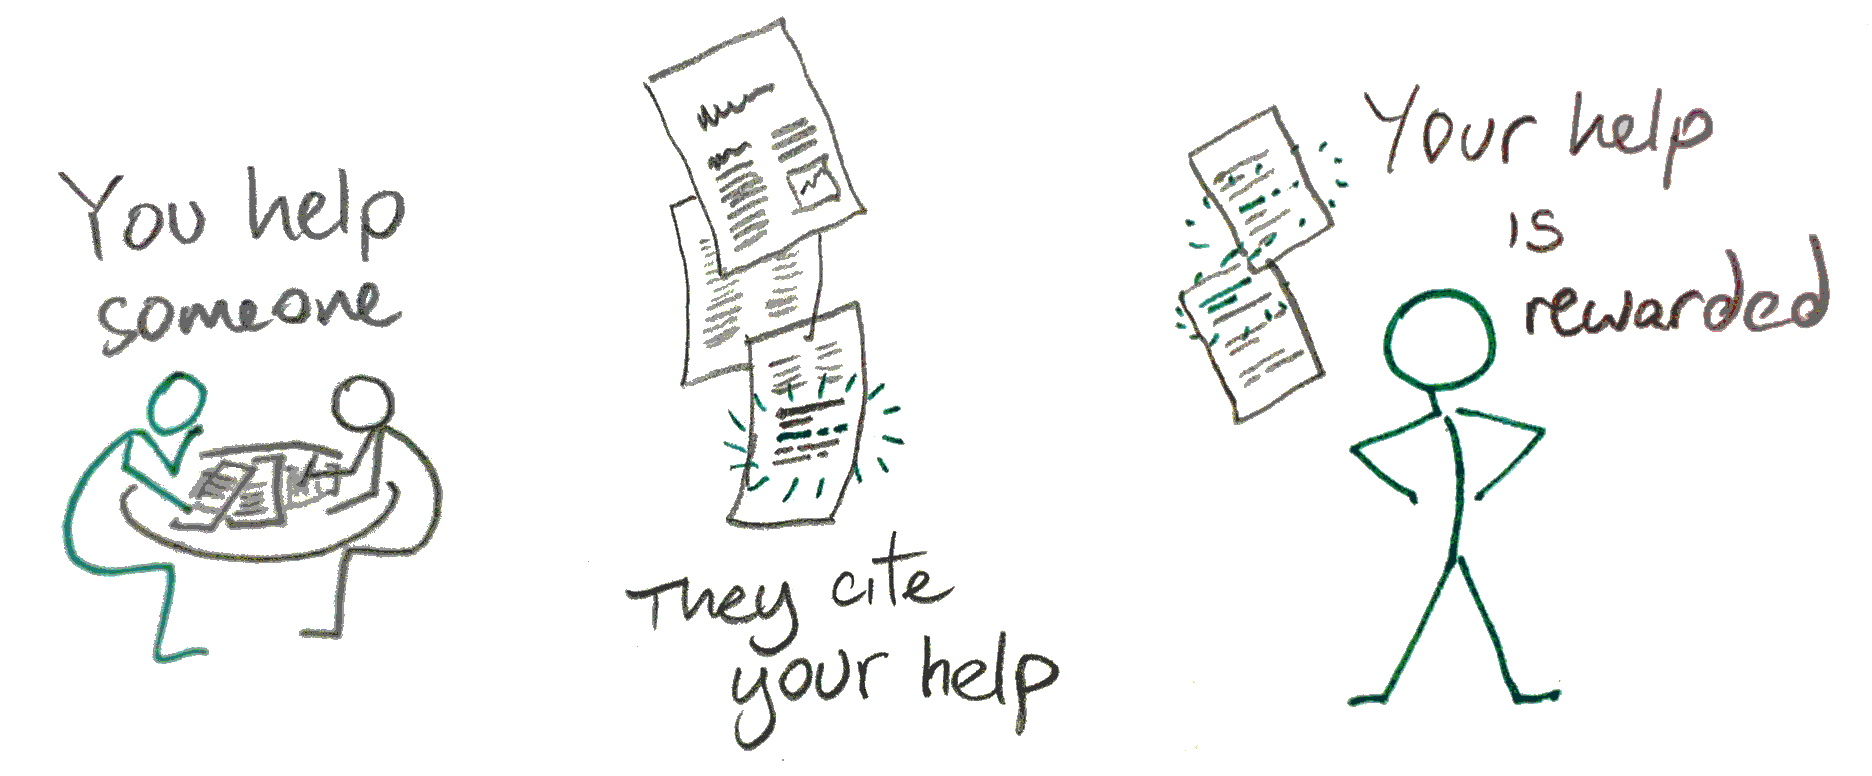 You help
someone
They cite
your help
Your help
is
rewarded